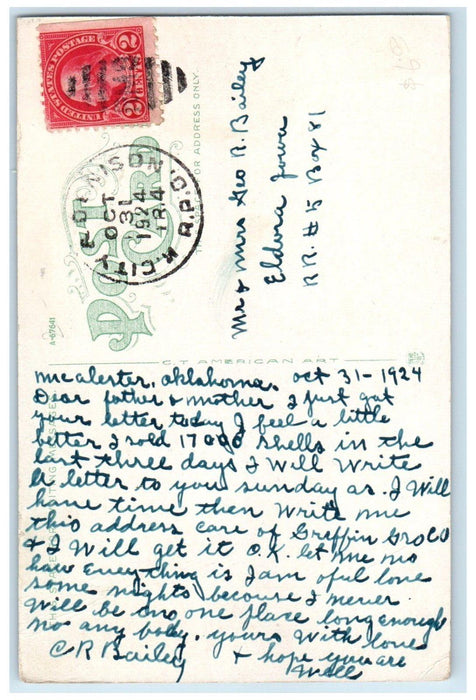 UNITED STATES POSTAGE
2 CENTS 2
K. CITY & DENISON
OCT
31
1924
TR 4
R.P.O.
POST CARD
FOR ADDRESS ONLY.
Mr & Mrs Geo R. Bailey
Eldora Iowa
RR. #5 Box 81
A-67641
C. T. AMERICAN ART
mcalester, oklahoma, oct 31 - 1924
Dear father & mother I just got
your letter today I feel a little
better I sold 17000 shells in the
last three days I Will Write
a letter to you sunday as I Will
have time then Write me
this address care of Greffin Gro Co
& I Will get it O.K. let me no
how Everything is I am oful lone
some nights because I never
Will be in one place long enough
no any body. yours With love
C R Bailey & hope you are
Well